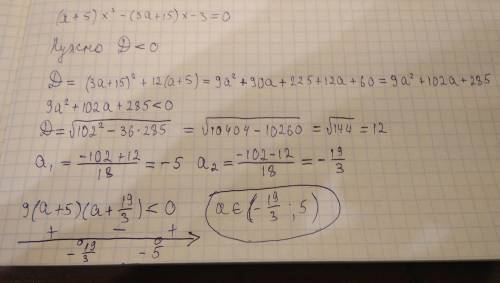 (a+5)x² - (3a+15)x - 3 = 0
Нужно D < 0
D = (3a+15)² + 12(a+5) = 9a² + 90a + 225 + 12a + 60 = 9a² + 102a + 285
9a² + 102a + 285 < 0
D = √(102² - 36·285) = √(10404 - 10260) = √144 = 12
a₁ = (-102+12)/18 = -5 a₂ = (-102-12)/18 = -19/3
9(a+5)(a+19/3) < 0 a ∈ (-19/3 ; 5)
+ - +
-19/3 -5